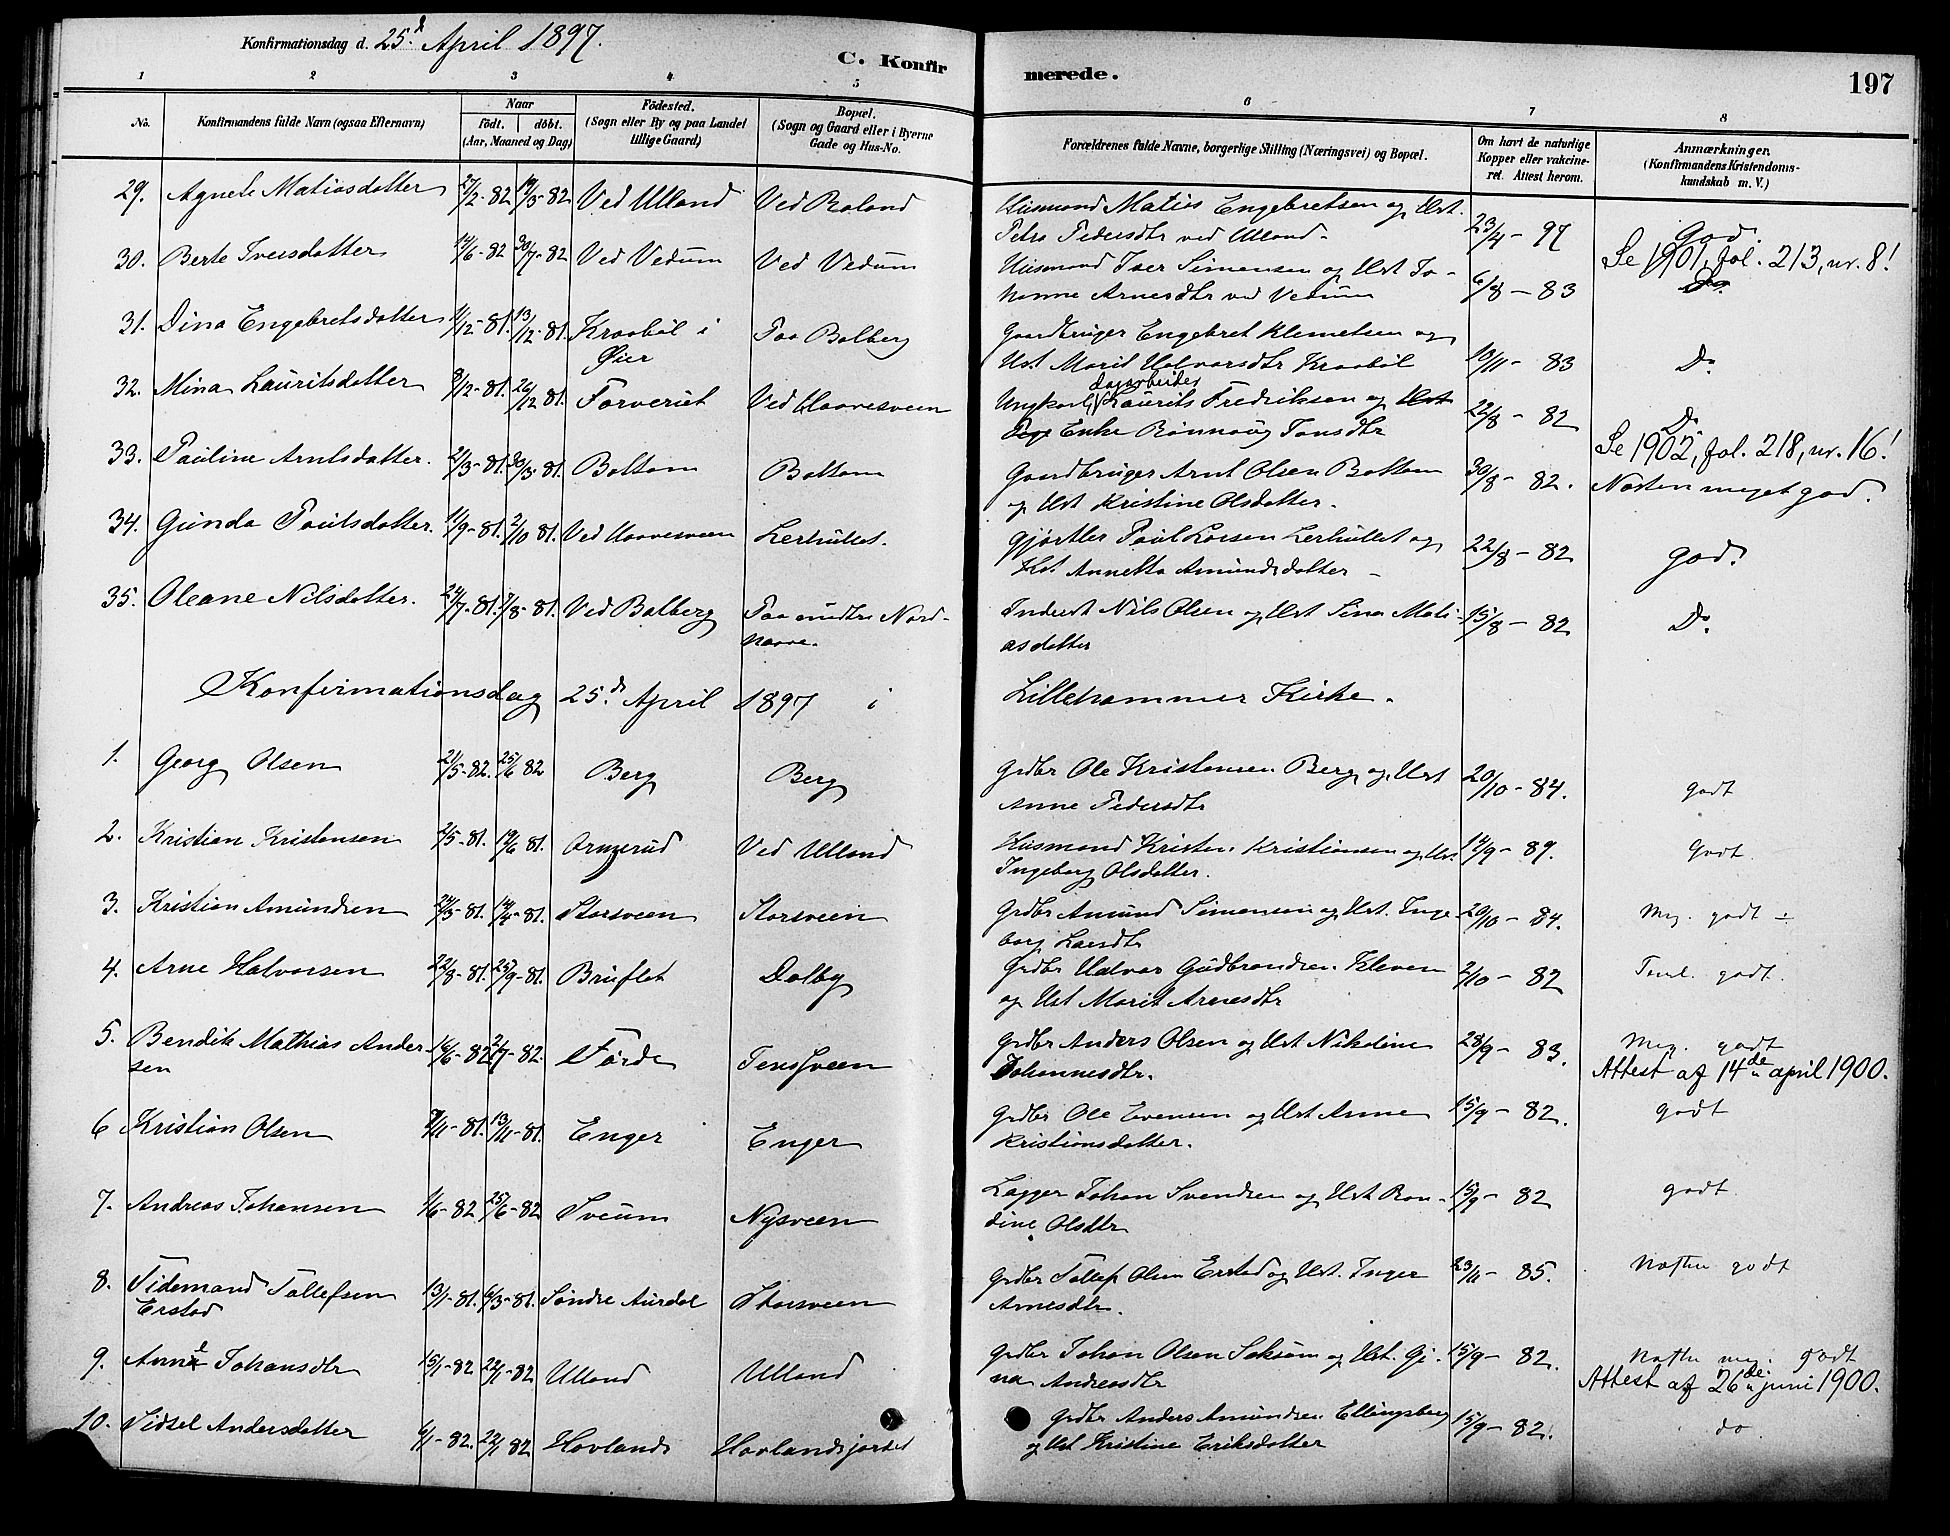 Konfirmationsdag d. 25d April 1897.
C. Konfirmerede.
197
1 2 3 4 5 6 7 8
No.
Konfirmandens fulde Navn (ogsaa Efternavn)
Naar
födt. döbt.
(Aar, Maaned og Dag)
Födested.
(Sogn eller By og paa Landet
tillige Gaard)
Bopæl.
(Sogn og Gaard eller i Byerne
Gade og Hus-No.
Forældrenes fulde Navne, borgerlige Stilling (Næringsvei) og Bopæl.
Om havt de naturlige
Kopper eller vakcine-
ret. Attest herom.
Anmærkninger.
(Konfirmandens Kristendoms-
kundskab m. V.)
29. Agnete Matiasdatter 27/2-82 19/3-82 Ved Ulland Ved Roland Husmand Matias Engebretsen og Hst.
Petra Pedersdtr ved Ulland. 23/4-97 God.
Se 1901, fol. 213, nr. 8!
30. Berte Iversdatter 14/6-82 30/7-82 Ved Vedum Ved Vedum Husmand Iver Simensen og Hst Jo-
hanne Arnesdtr ved Vedum 6/8-83 Do
31. Dina Engebretsdatter 1/12-81. 13/12-81. Kraabøl i
Øier Paa Balberg Gaardbruger Engebret Klemetsen og
Hst. Marit Halvorsdtr Kraabøl 13/11-83 Do
32. Mina Lauritsdatter 8/12-81. 26/12 81. Farveriet Ved Haavesveen Ungkarl, dagarbeider Laurits Fredriksen og Hst
Pige Enke Rønnaug Tonsdtr 22/8-82 Do
Se 1902, fol. 218, nr. 16!
33. Pauline Arntsdatter. 2/3-81. 30/3-81. Baltom Baltom Gaardbruger Arnt Olsen Baltom
og Hst Kristine Olsdatter. 30/8-82. Næsten meget god.
34. Gunda Paulsdatter. 11/9-81. 2/10 81. Ved Haavesveen Lerhullet. Gjørtler Paul Larsen Lerhullet og
Hst. Annetta Amundsdatter 22/8-82 God.
35. Oleane Nilsdatter. 24/7-81. 7/8-81. Ved Balberg Paa nedtre Nord-
haave. Inderst Nils Olsen og Hst Sina Mati-
asdatter 15/8-82 Do
Konfirmationsdag 25d April 1897 i Lillehammer Kirke.
1. Georg Olsen 21/5-82. 25/6 82 Berg Berg Grdbr Ole Kristensen Berg og Hst
Anne Pedersdtr 20/10-84. godt
2. Kristian Kristensen 2/5-81. 19/6 81. Ved Ulland Husmand Kristen Kristiansen og Hst.
Ingeborg Olsdatter. 14/9-89. Godt.
3. Kristian Amundsen 24/3-81. 14/4-81. Storsveen Storsveen Grdbr Amund Simensen og Hst. Inge-
borg Larsdtr 20/10-84. Mg. godt ÷
4. Arne Halvorsen 22/8-81. 25/9-81. Bruflat Dalby Grdbr Halvor Gudbrandsen Kleven
og Hst Marit Arnesdtr 2/10-82 Teml. godt.
5. Bendik Mathias Ander-
sen 16/6-82 2/7-82. Førde Grdbr Anders Olsen og Hst Nikoline
Johannesdtr. 28/9-83. Meg. godt
Attest af 14de april 1900.
6 Kristian Olsen 7/11-81. 13/11-81. Enger Enger Grdbr Ole Evensen og Hst Anne
Kristiansdatter. 15/9-82. godt
7. Andreas Johansen 1/6-82 25/6-82 Sveum Nysveen Lægger Johan Svendsen og Hst Ran-
dine Olsdtr 15/9-82 godt.
8. Tidemand Tollefsen
Erstad 13/1-81. 6/3-81. Søndre Aurdal Storsveen Grdbr Tollef Olsen Erstad og Hst. Inger
Arnesdtr. 23/11-85. Næsten godt
9. Anne Johansdtr 15/1-82 22/1-82 Ulland Ulland Grdbr Johan Olsen Saksum og Hst. Gi-
na Andreasdtr 15/9-82. Næsten meg. godt
Attest af 26de juni 1900.
10. Sidsel Andersdatter 6/1-82. 22/1 82 Hovlands Hovlandsjortet Grdbr Anders Amundsen Ellingsberg
og Hst Kristine Eriksdatter 15/9-82. do.